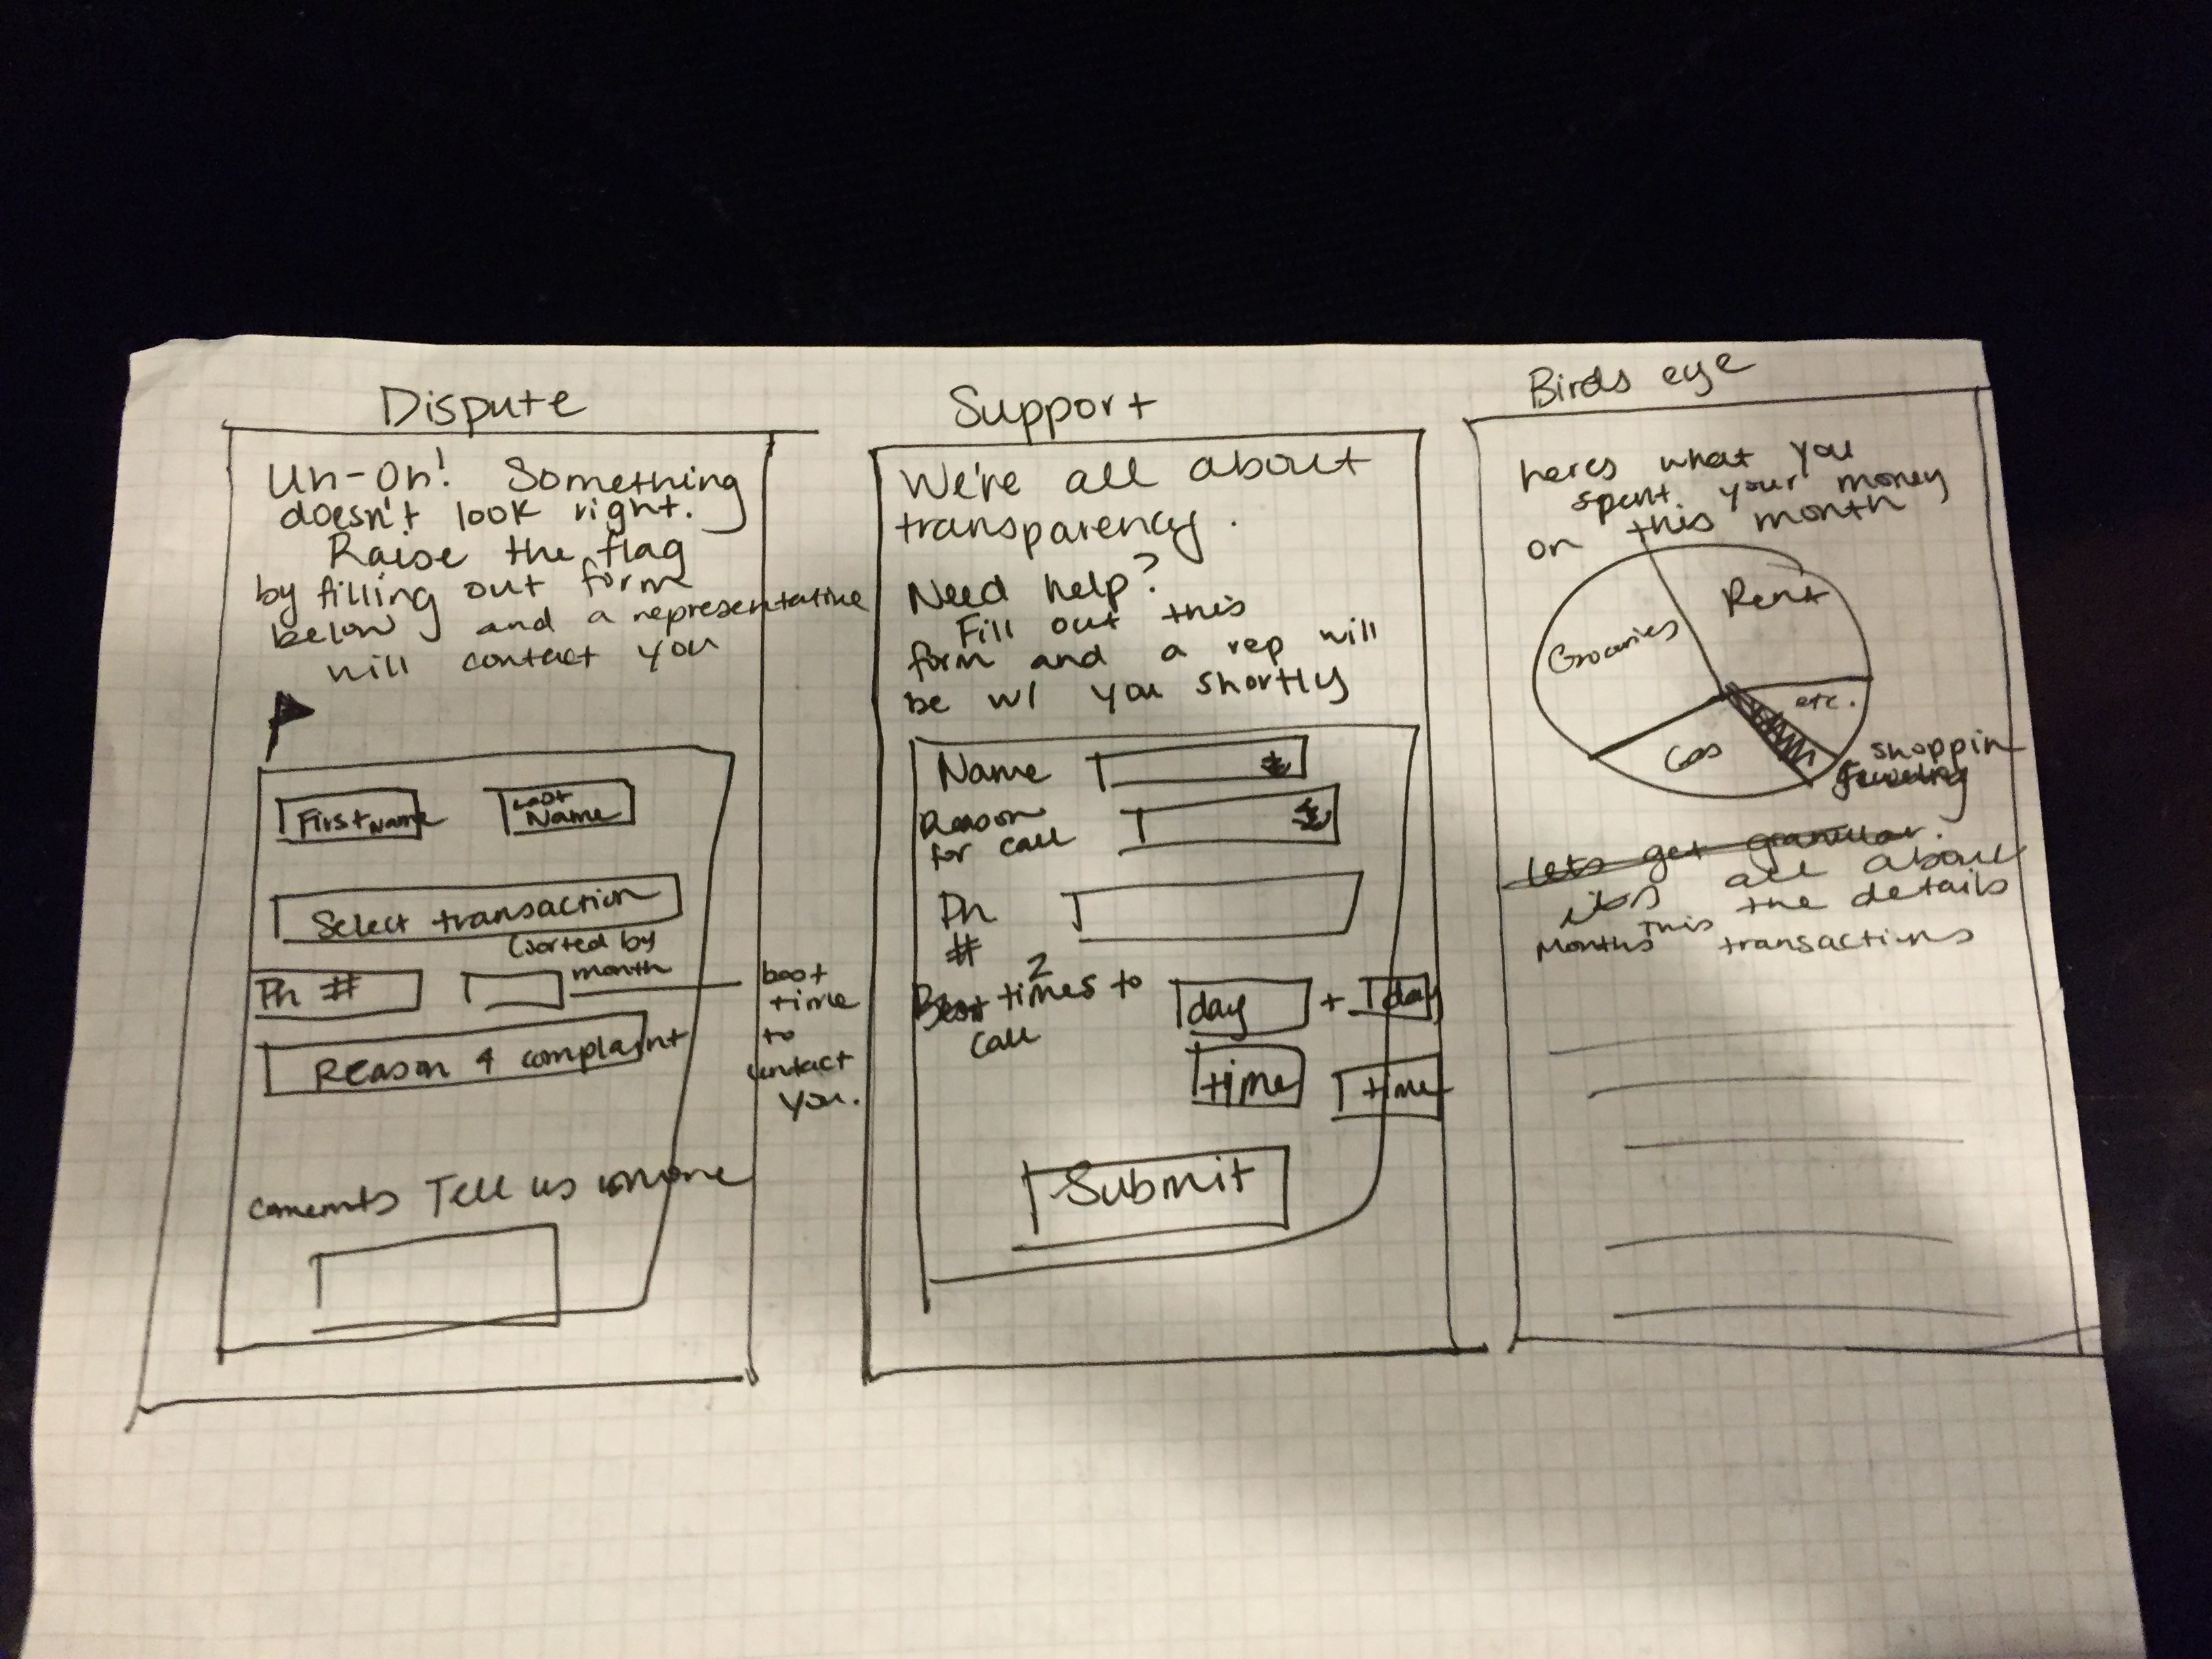 Dispute
Uh-Oh! Something
doesn't look right.
Raise the flag
by filling out form
below and a representative
will contact you
First Name
Last Name
Select transaction
(sorted by
month
Ph #
best
time
to
contact
you.
Reason 4 complaint
Comemnts Tell us more
Support
We're all about
transparency.
Need help?
Fill out this
form and a rep will
be w/ you shortly
Name
Reason
for call
Ph
#
Best 2 times to
call
day + day
time time
Submit
Birds eye
heres what you
spent your money
on this month
Groceries
Rent
etc.
Gas
shoppin
lets get granular.
its all about
this the details
Months transactions